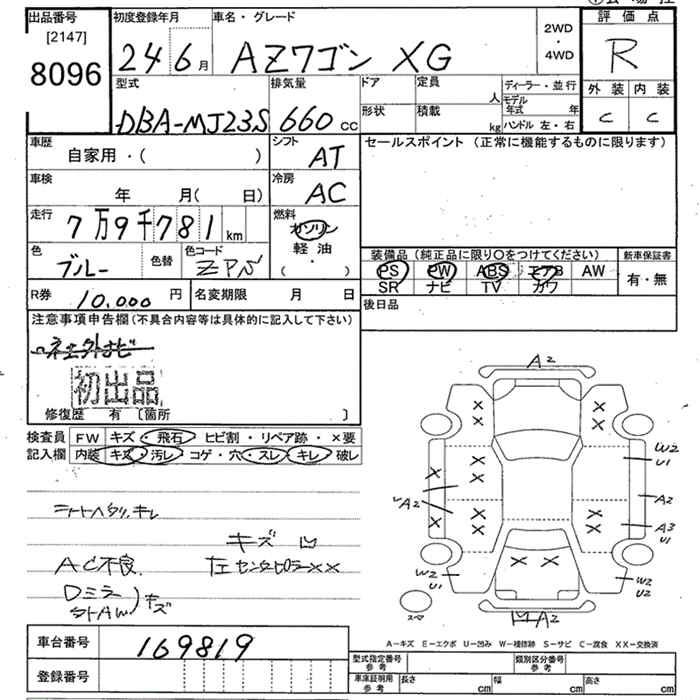 出品番号 初度登録年月 車名・グレード 2WD・4WD 評価点
[2147]
8096 24 6月 AZワゴン XG R
型式 排気量 ドア 定員 人 ディーラー・並行 外装 内装
DBA-MJ23S 660cc 形状 積載 kg モデル年式 年 ハンドル 左・右 C C
車歴 シフト セールスポイント (正常に機能するものに限ります)
自家用・( ) AT
車検 冷房
年 月( 日) AC
走行 燃料
7万9千781km ガソリン
軽・油
( ・ )
色 色替 色コード 装備品 (純正品に限り〇をつけてください) 新車保証書
ブルー ZPN PS PW ABS エアB AW 有・無
SR ナビ TV カワ
R券 10,000円 名変期限 月 日 後日品
注意事項申告欄(不具合内容等は具体的に記入して下さい)
初出品
修復歴 有 〔箇所 〕
検査員 FW キズ・飛石 ヒビ割・リペア跡・×要
記入欄 内装 キズ・汚レ コゲ・穴・スレ・キレ 破レ
シートヘタリ、キレ
キズ 凹
AC不良. 左センターピラーXX
Dミラー
ステアW キズ
A2
W2
U1
A2
A2
A3
U1
W2
U1
W2
U2
スペア
凹A2
A－キズ E－エクボ U－凹み W－補修跡 S－サビ C－腐食 XX－交換済
車台番号 169819
登録番号
型式指定番号 参考 類別区分番号 参考
車庫証明用 参考 長さ cm 幅 cm 高さ cm